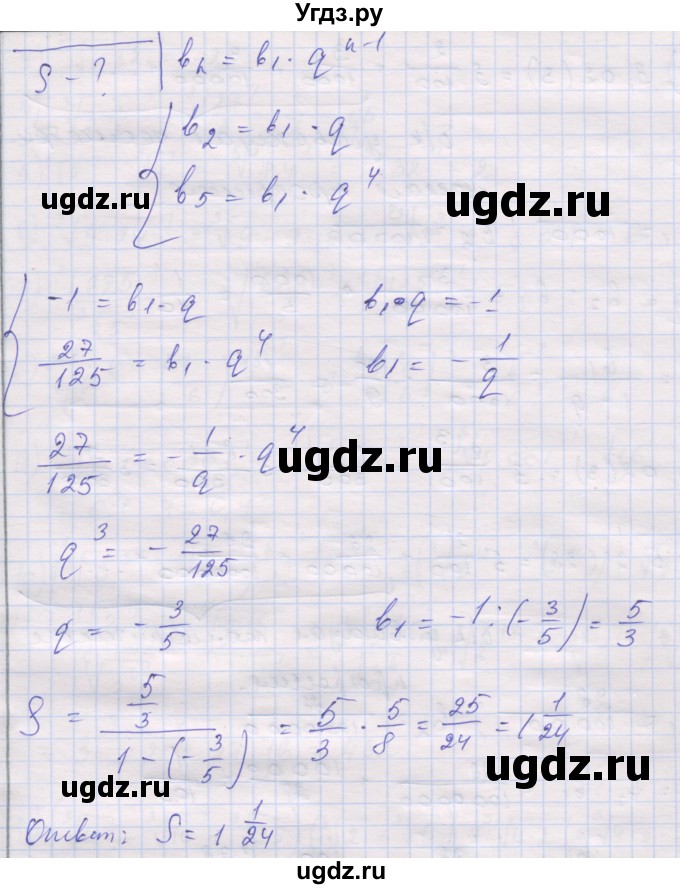 Угдз.ру
S - ? | bₙ = b₁ · qⁿ⁻¹
{ b₂ = b₁ · q
b₅ = b₁ · q⁴
ugdz.ru ugdz.ru
{ -1 = b₁ · q b₁ · q = -1
27/125 = b₁ · q⁴ b₁ = - 1/q
27/125 = - 1/q · q⁴
ugdz.ru
q³ = - 27/125
q = - 3/5 b₁ = -1 : (- 3/5) = 5/3
S = (5/3)/(1 - (- 3/5)) = 5/3 · 5/8 = 25/24 = 1 1/24
ugdz.ru ugdz.ru
Ответ: S = 1 1/24
ugdz.ru